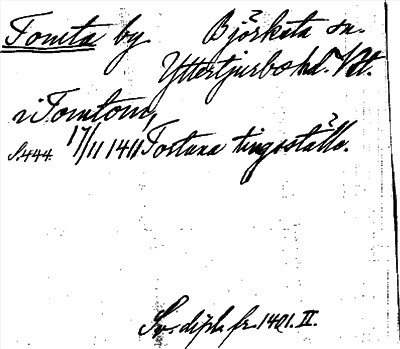 Tomta by. Björksta sn.
Yttertjurbo hd. Vstm.
i Tomtom,
S.444 17/11 1411 Tortuna tingsställe.
Sv. dipl. fr. 1401. II.